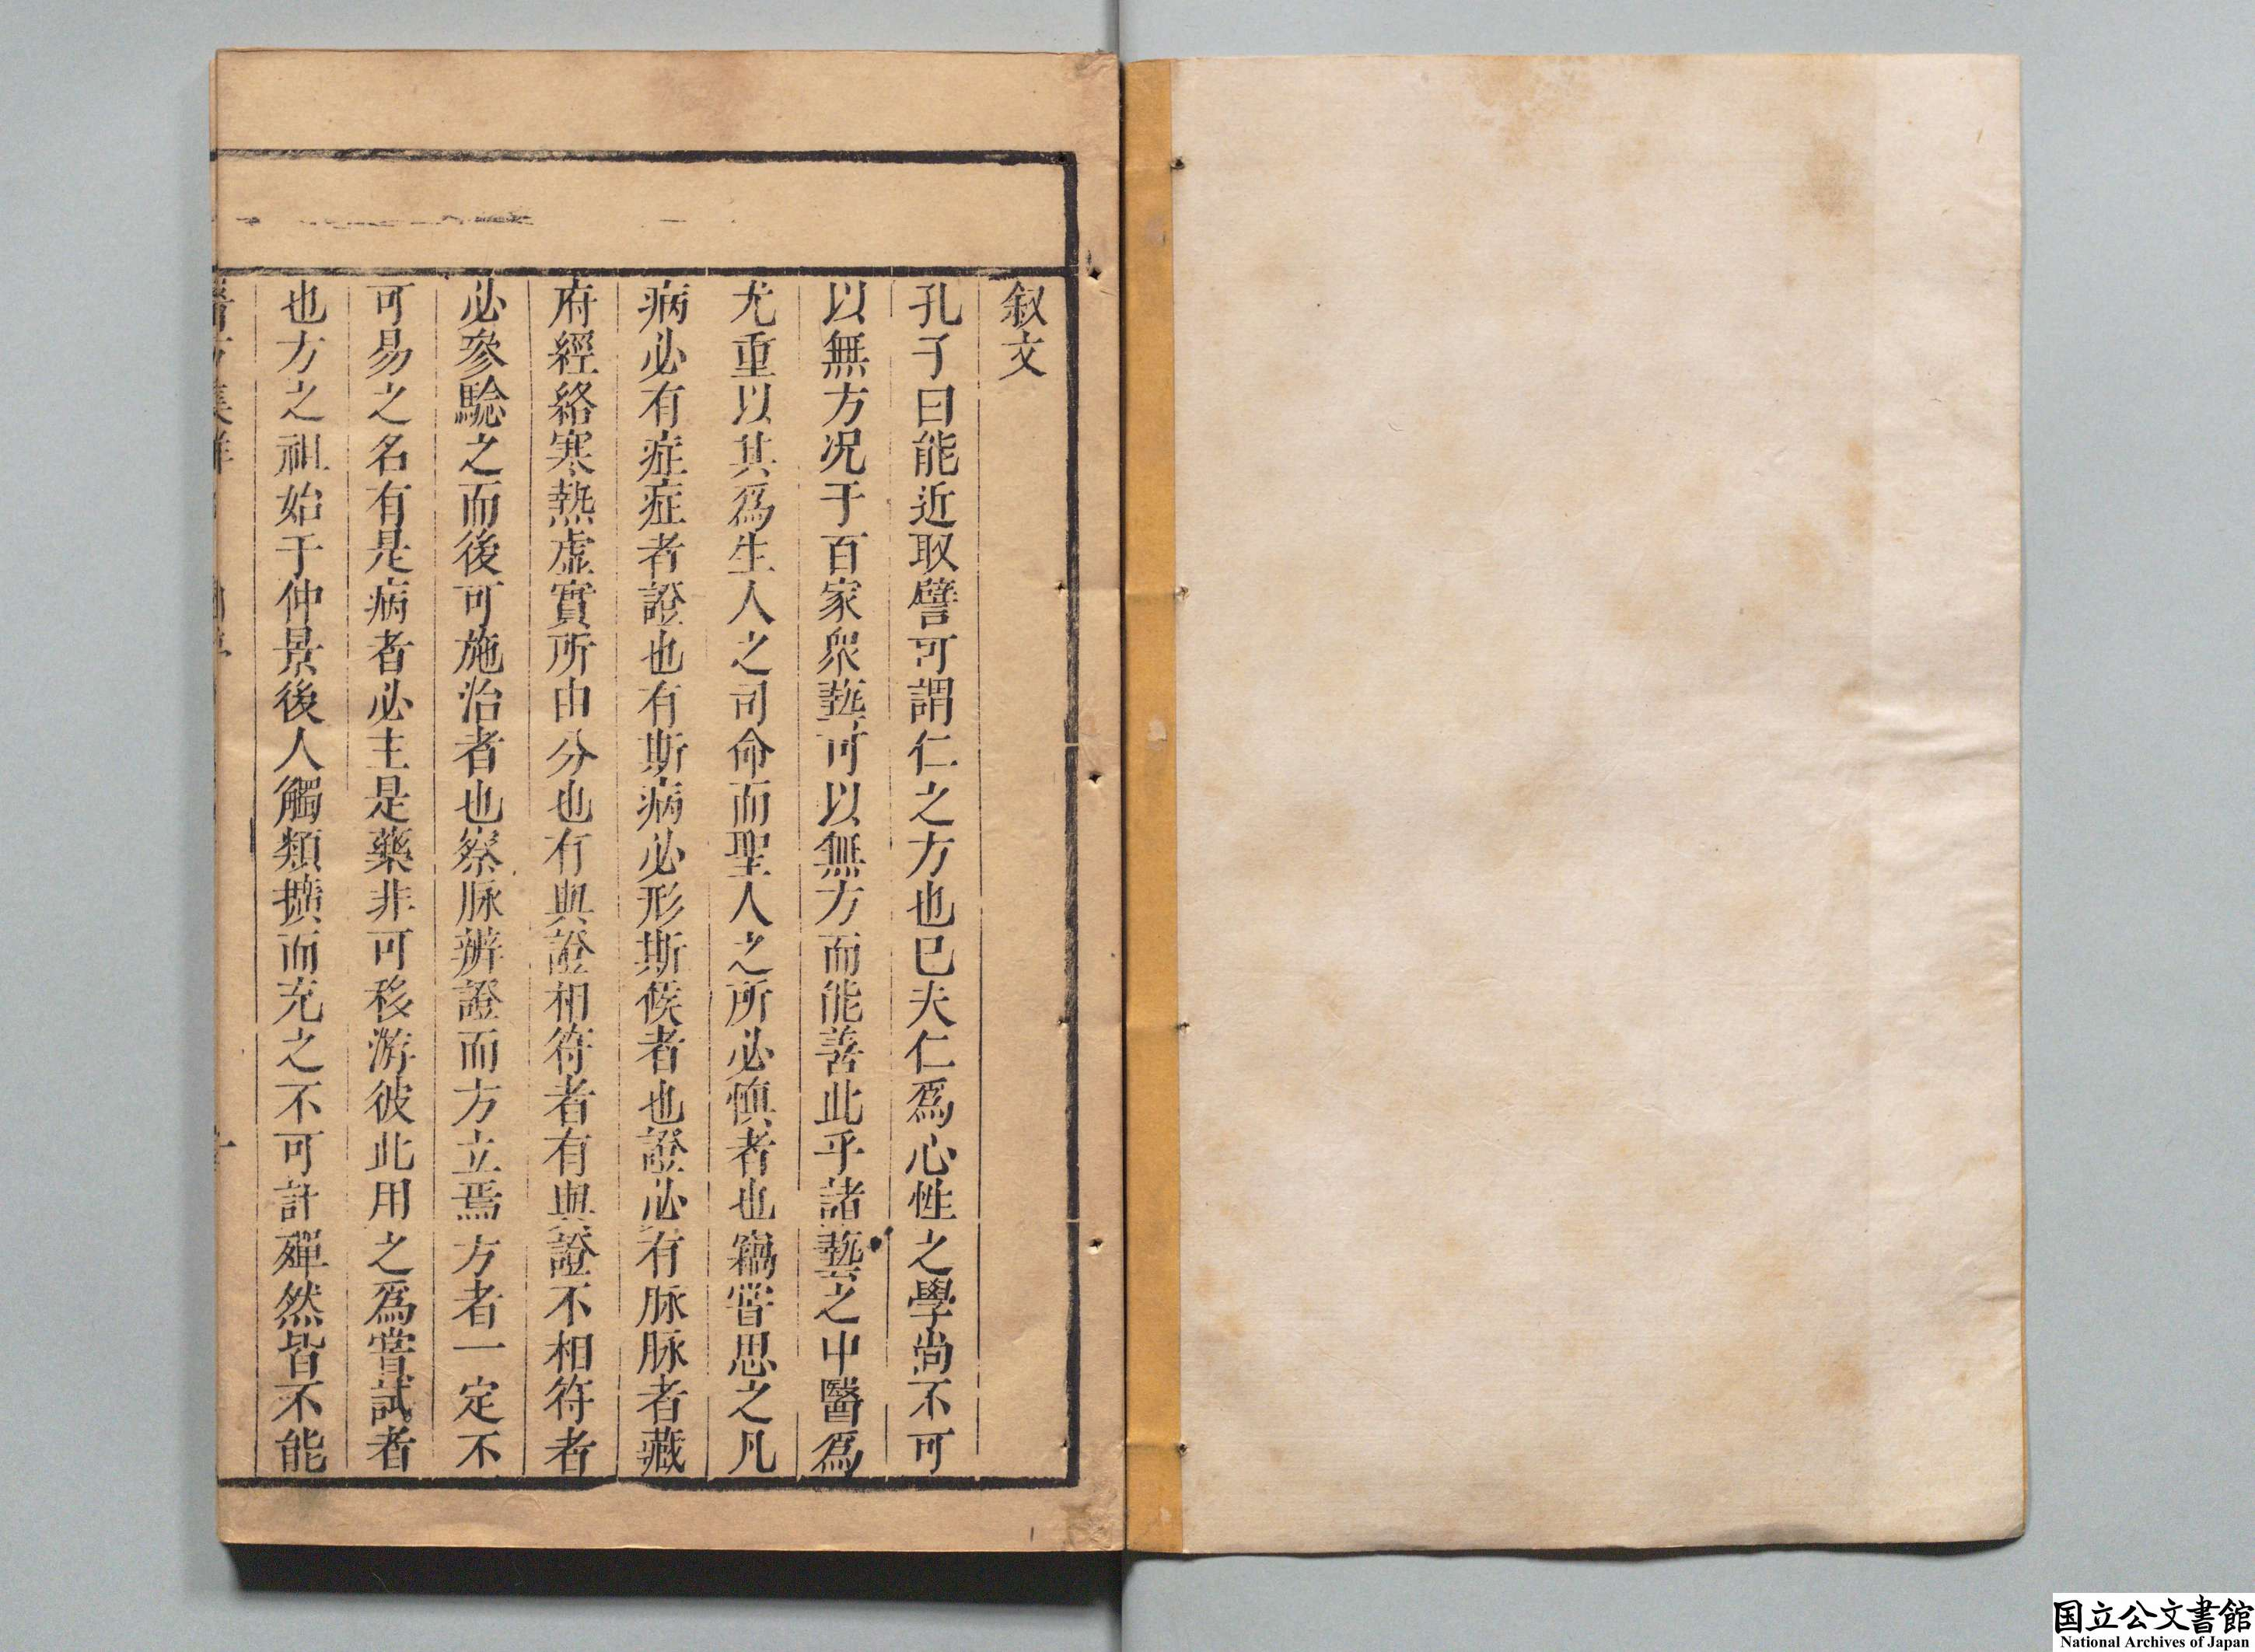 叙文
孔子曰能近取譬可謂仁之方也已夫仁爲心性之學尚不可
以無方况于百家衆藝可以無方而能善此乎諸藝之中醫爲
尤重以其爲生人之司命而聖人之所必慎者也竊嘗思之凡
病必有症症者證也有斯病必形斯候者也證必有脉脉者藏
府經絡寒熱虚實所由分也有與證相符者有與證不相符者
必參驗之而後可施治者也察脉辨證而方立焉方者一定不
可易之名有是病者必主是藥非可移游彼此用之爲嘗試者
也方之祖始于仲景後人觸類擴而充之不可計殫然皆不能
国立公文書館
National Archives of Japan